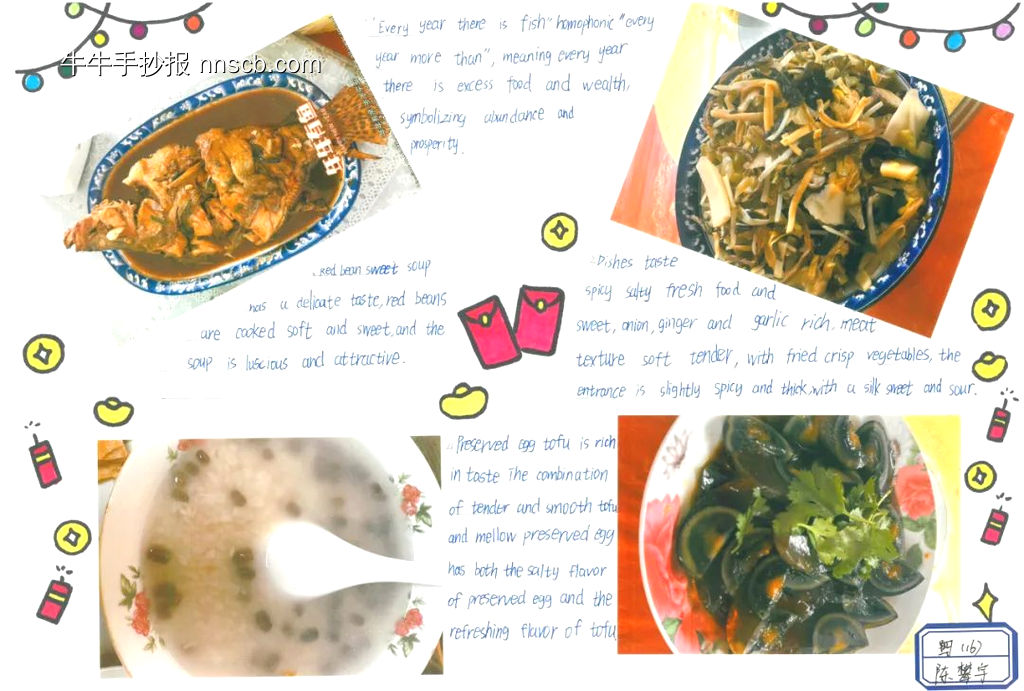 牛牛手抄报 nnscb.com
"Every year there is fish" homophonic "every
year more than", meaning every year
there is excess food and wealth,
symbolizing abundance and
prosperity.
Red bean sweet soup
has a delicate taste, red beans
are cooked soft and sweet, and the
soup is luscious and attractive.
Dishes taste
spicy salty fresh food and
sweet, onion, ginger and garlic rich, meat
texture soft tender, with fried crisp vegetables, the
entrance is slightly spicy and thick, with a silk sweet and sour.
Preserved egg tofu is rich
in taste The combination
of tender and smooth tofu
and mellow preserved egg
has both the salty flavor
of preserved egg and the
refreshing flavor of tofu
(16)
陈攀宇